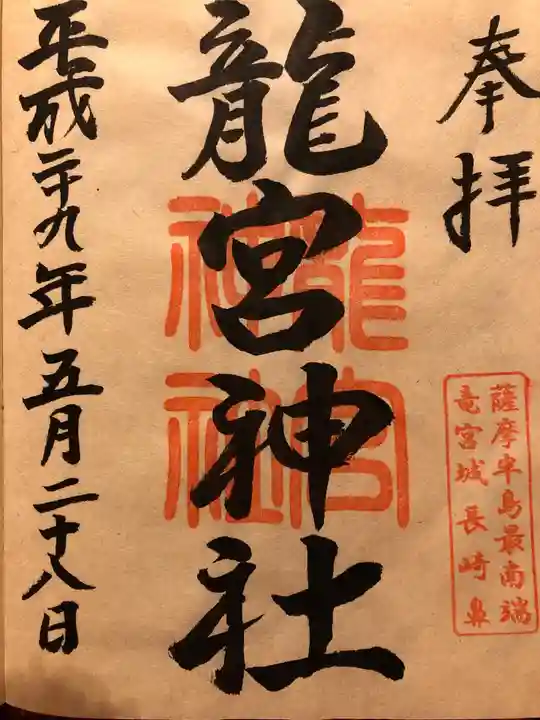 奉拝
薩摩半島最南端
竜宮城 長崎鼻
龍宮神社
龍宮
神社
平成二十九年五月二十八日